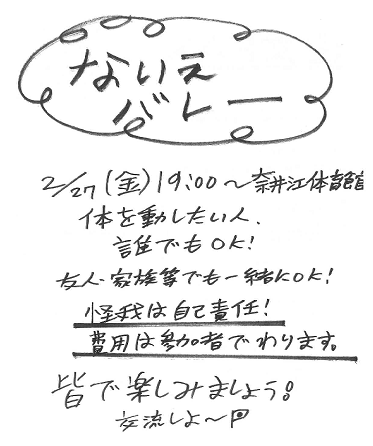 ないえ
バレー
2/27(金)19:00〜奈井江体育館
体を動したい人、
誰でもOK!
友人・家族等でも一緒にOK!
怪我は自己責任!
費用は参加者でわります。
皆で楽しみましょう。
交流しよ〜P